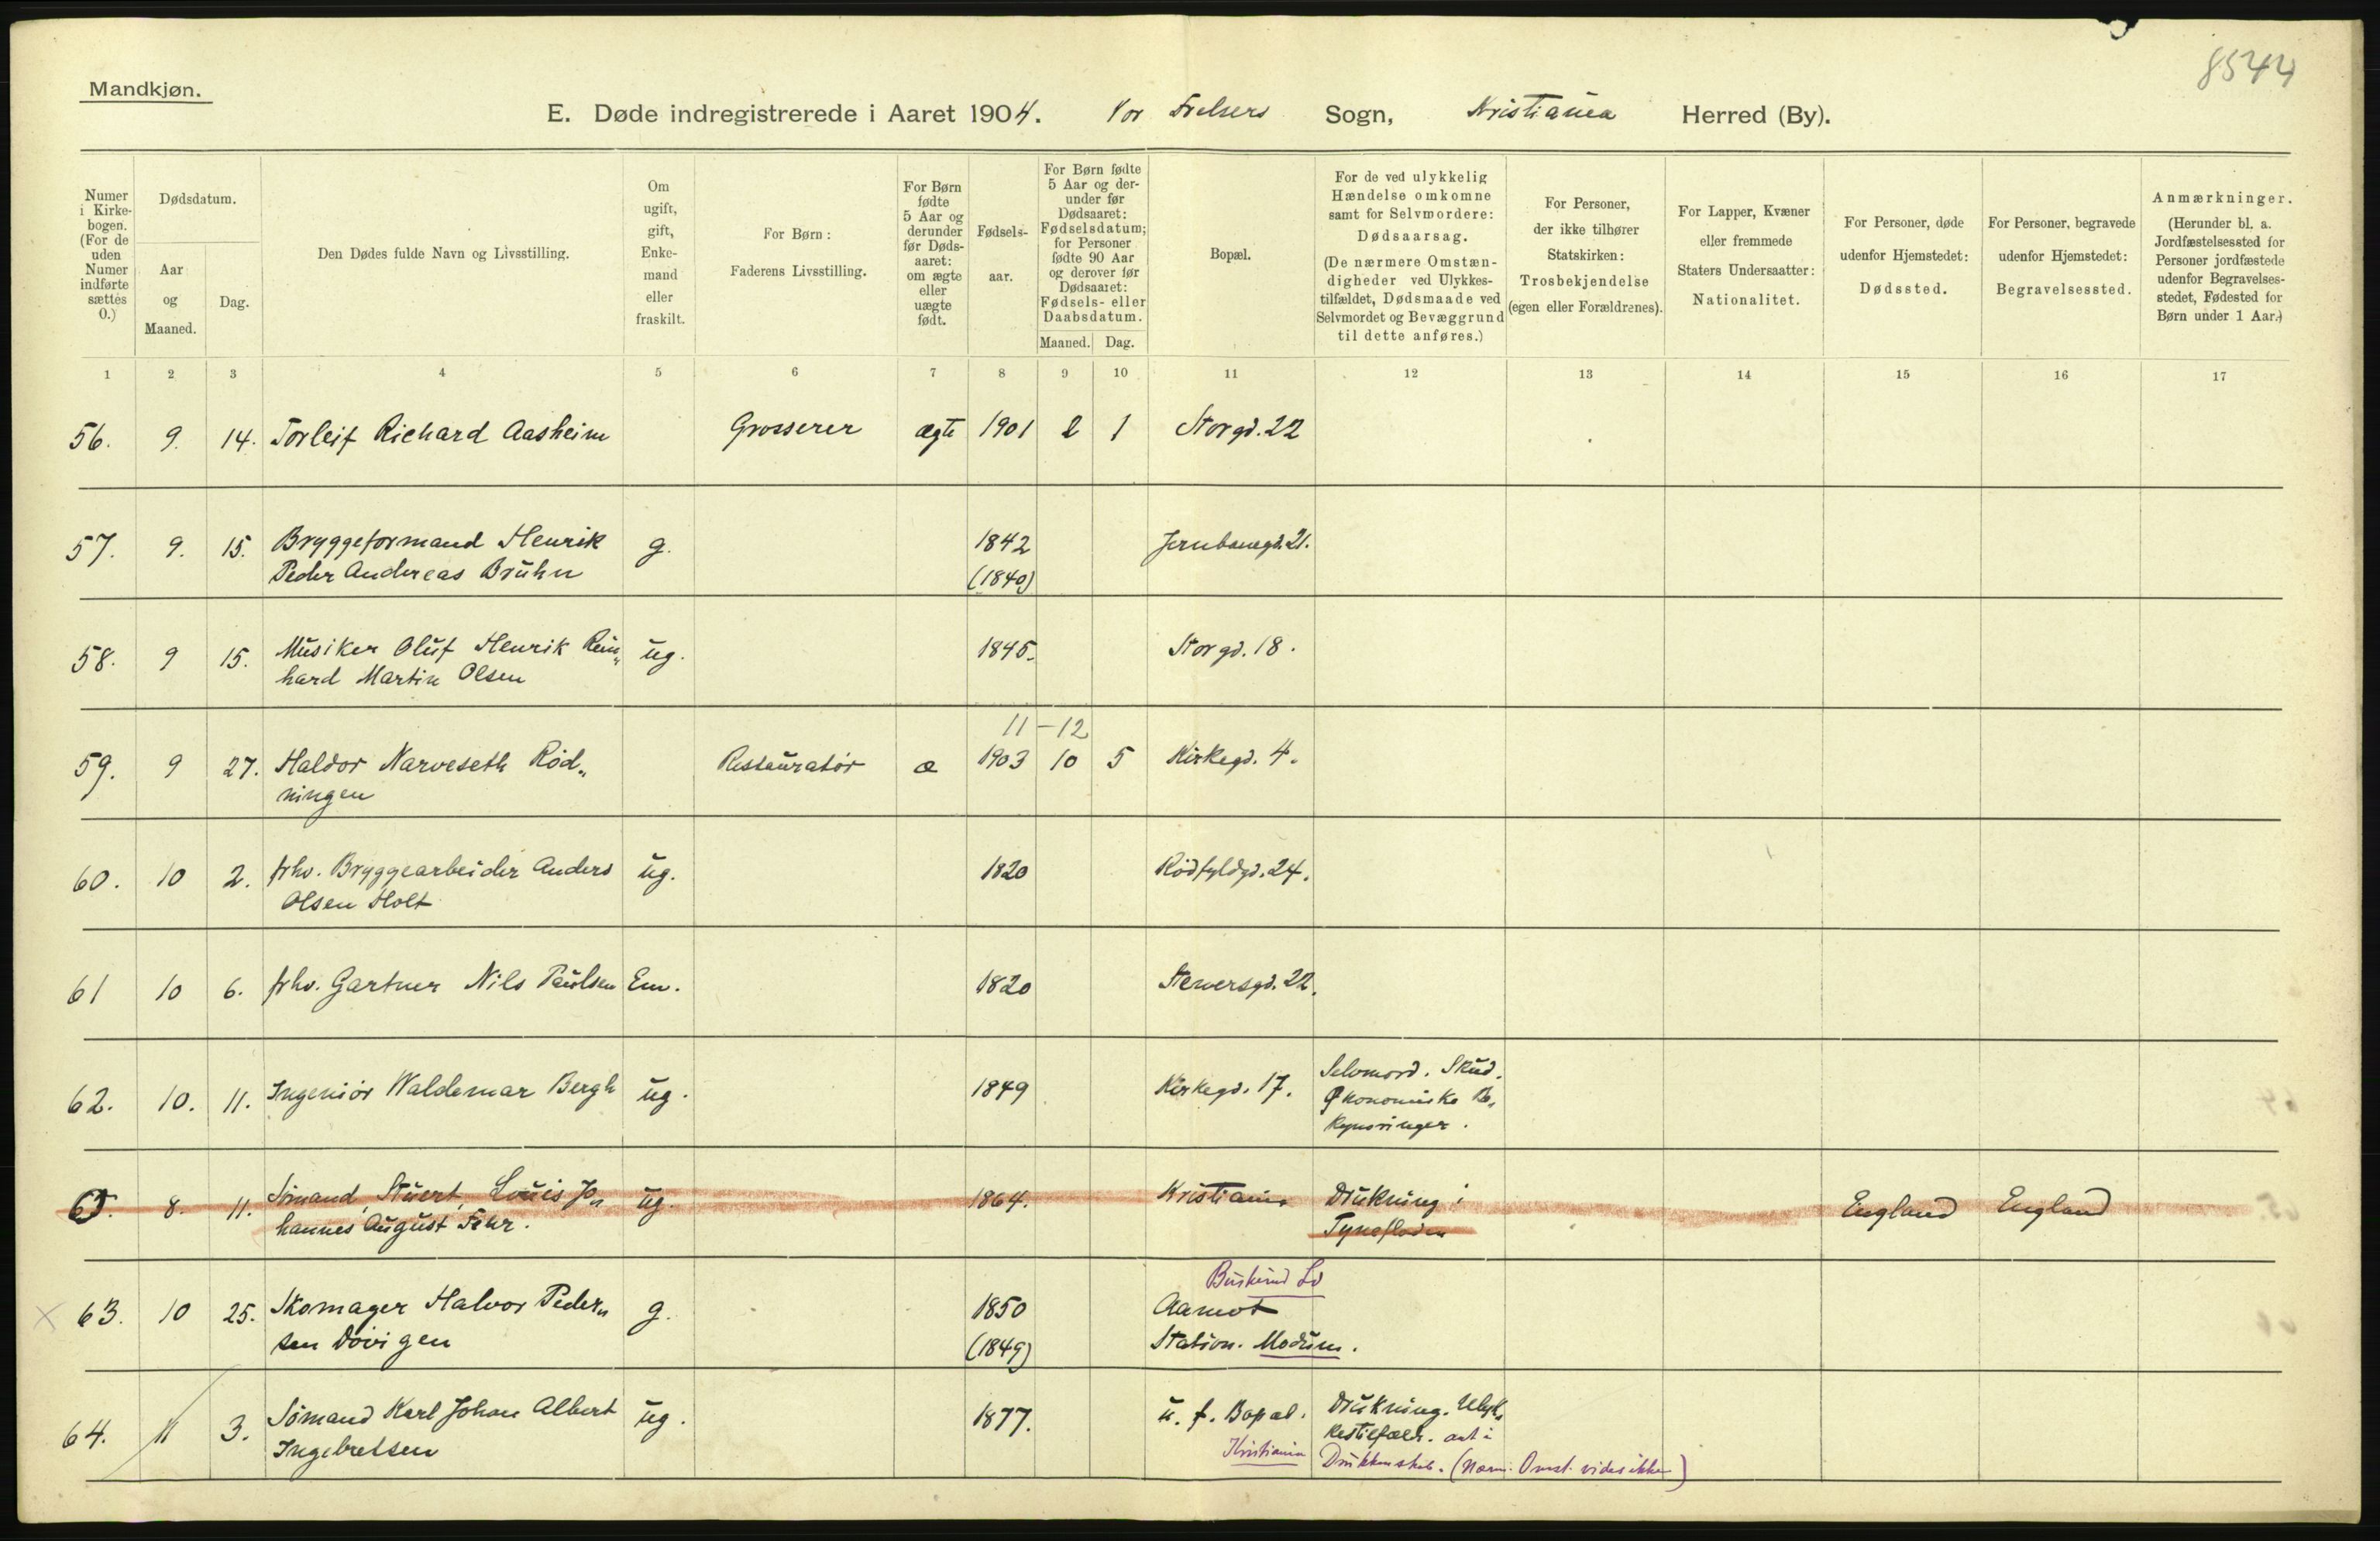 8544
Mandkjøn.
E. Døde indregistrerede i Aaret 1904. Vor Frelsers Sogn, Kristiania Herred (By).
Numer i Kirkebogen. (For de uden Numer indførte sættes 0.)
Dødsdatum.
Aar og Maaned.
Dag.
Den Dødes fulde Navn og Livsstilling.
Om ugift, gift, Enkemand eller fraskilt.
For Børn: Faderens Livsstilling.
For Børn fødte 5 Aar og derunder før Dødsaaret: om ægte eller uægte født.
Fødselsaar.
For Børn fødte 5 Aar og derunder før Dødsaaret: Fødselsdatum; for Personer fødte 90 Aar og derover før Dødsaaret: Fødsels- eller Daabsdatum.
Maaned. Dag.
Bopæl.
For de ved ulykkelig Hændelse omkomne samt for Selvmordere: Dødsaarsag. (De nærmere Omstændigheder ved Ulykkestilfældet, Dødsmaade ved Selvmordet og Bevæggrund til dette anføres.)
For Personer, der ikke tilhører Statskirken: Trosbekjendelse (egen eller Forældrenes).
For Lapper, Kvæner eller fremmede Staters Undersaatter: Nationalitet.
For Personer, døde udenfor Hjemstedet: Dødssted.
For Personer, begravede udenfor Hjemstedet: Begravelsessted.
Anmærkninger. (Herunder bl. a. Jordfæstelsessted for Personer jordfæstede udenfor Begravelsesstedet, Fødested for Børn under 1 Aar.)
1 2 3 4 5 6 7 8 9 10 11 12 13 14 15 16 17
56. 9. 14. Torleif Richard Aasheim Grosserer ægte 1901 2 1 Storgd. 22
57. 9. 15. Bryggeformand Henrik g. 1842 Jernbanegd. 21.
Peder Andreas Brühn (1840)
58. 9 15. Musiker Oluf Henrik Rein„ ug. 1845. Storgd. 18.
hard Martin Olsen
11 – 12
59. 9 27. Haldor Narveseth Rød„ Restauratør æ 1903 10 5 Kirkegd. 4.
ningen
60. 10 2. fhv. Bryggearbeider Anders ug. 1820 Rødfyldgd. 24.
Olsen Holt
61 10 6. fhv. Gartner Nils Paulsen Em. 1820 Stenersgd. 22.
62. 10. 11. Ingeniør Waldemar Bergh ug. 1849 Kirkegd. 17. Selvmord. Skud.
Økonomiske Be„
kymringer.
8. 11. Sømand, Stuert, Louis Jo„ ug. 1864. Kristiania Drukning i England England
hannes August Fehr. Tynefloden
Buskerud
x 63. 10 25. Skomager Halvor Peder„ g. 1850 Aamot
sen Døvigen (1849) Station. Modum.
64. 11 3. Sømand Karl Johan Albert ug. 1877. u. f. Bopæl. Drukning. Ulyk„
Ingebretsen kestilfælde. ant i
Kristiania Drukkenskab. (Nærm. Omst. vides ikke)